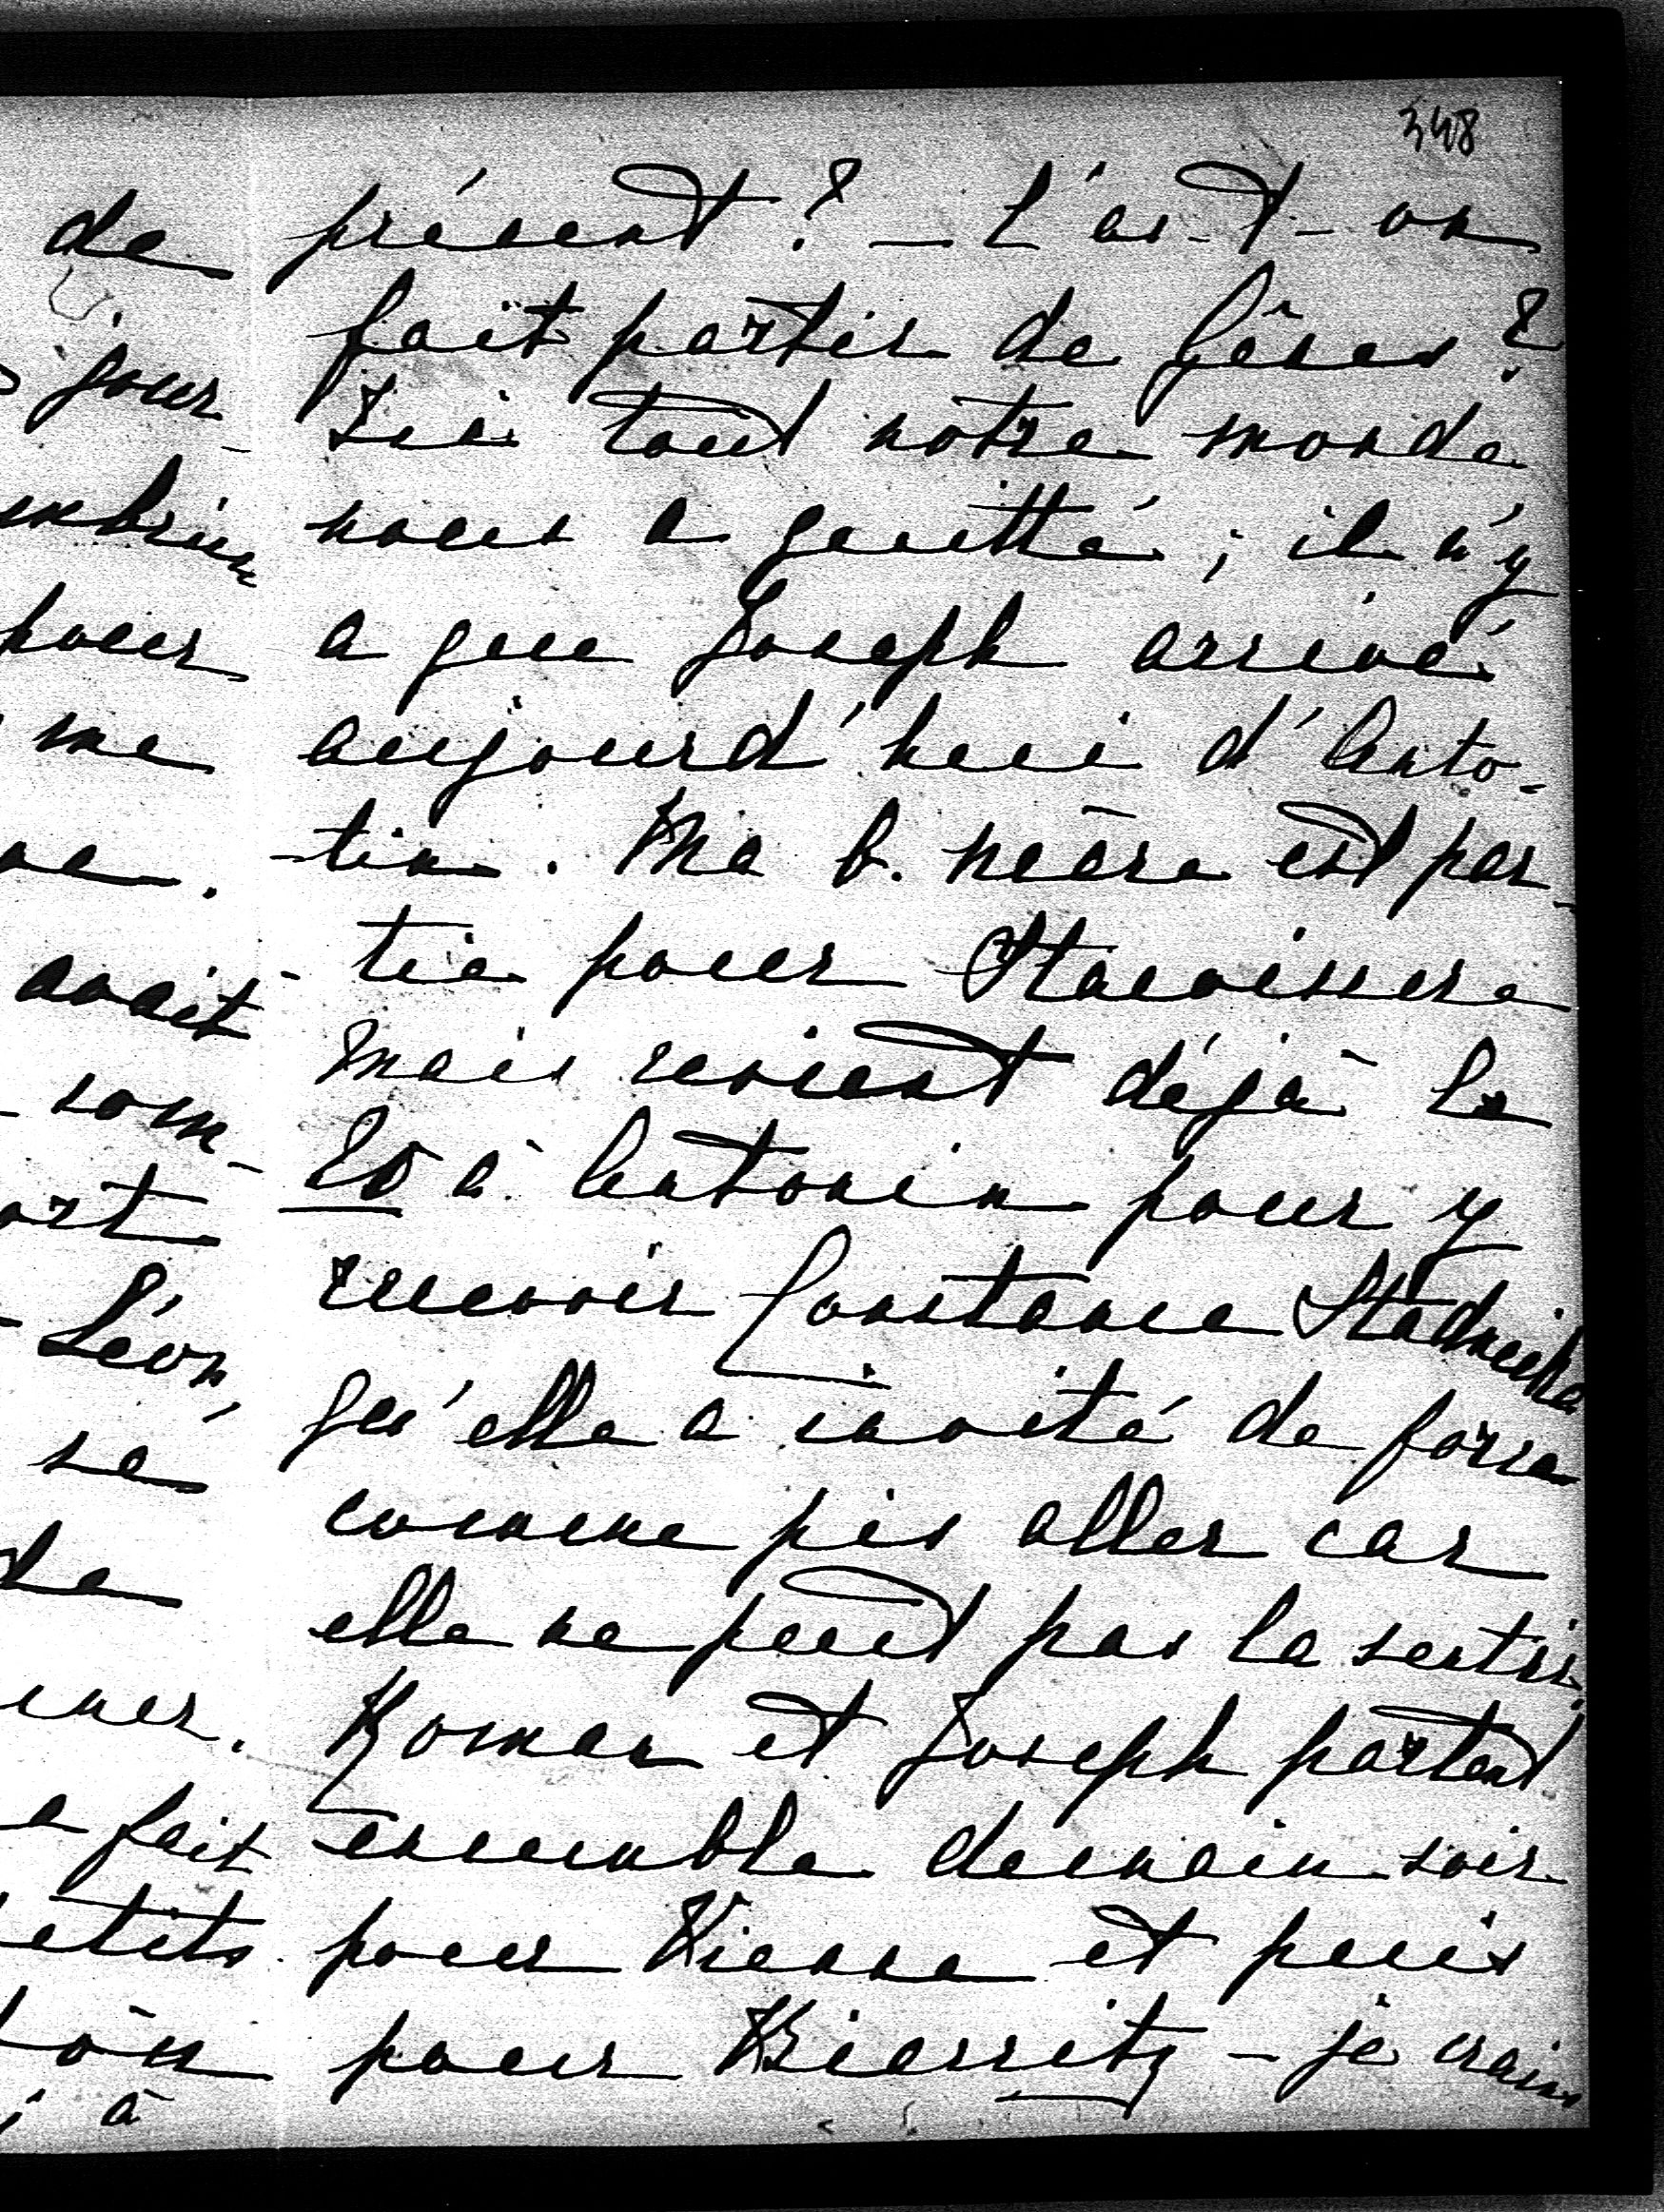 348
de
jour-
pour
me
avait
som-
Léon,
se
de
fait
à
présent ? — L'as-t-on
fait partir de Gênes ?
Ici tout notre monde
nous a quitté ; il n'y
a que Joseph arrivé
aujourd'hui d'Anto-
-tin. Ma b. mère est par-
-tie pour
mais revient déjà le
20 à Antonin pour y
recevoir Constance Stadnicka
qu'elle a invité de force
comme pis aller car
elle ne peut pas la sentir.
Roman et Joseph partent
ensemble demain soir
pour Vienne et puis
pour Biarritz – je crains